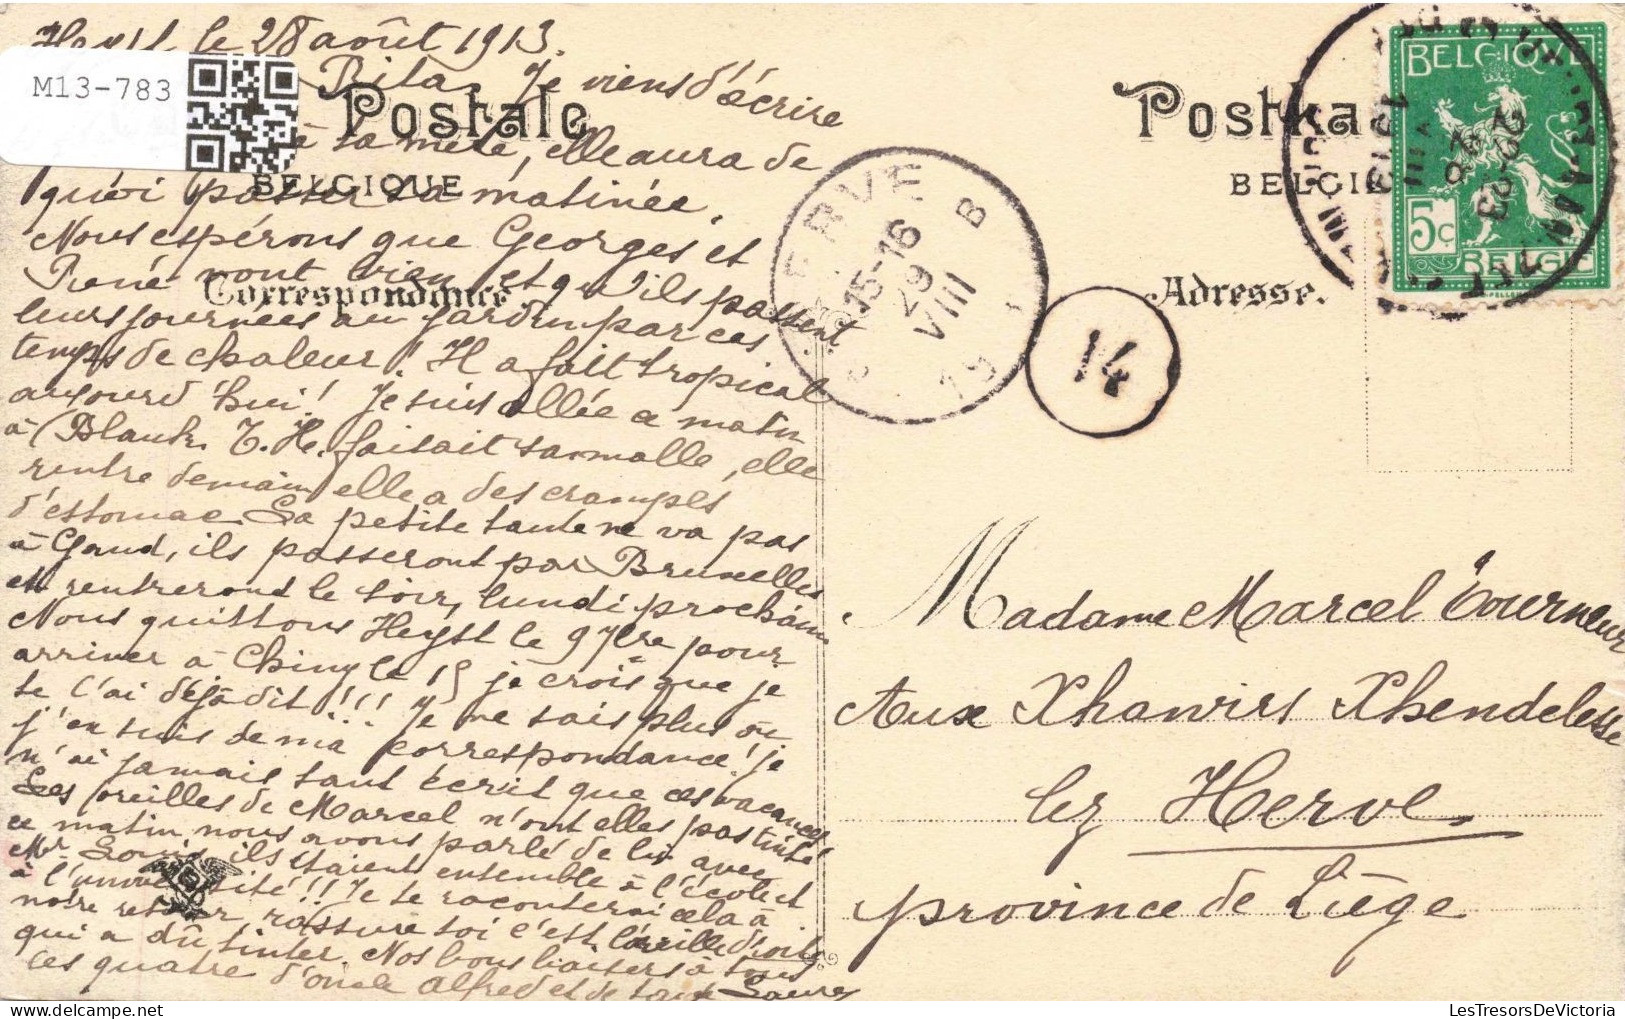 Heyst le 28 août 1913.
M13-783
Rita, Je viens d'écrire
Postale
à ta mère, elle aura de
BELGIQUE
quoi passer sa matinée.
Nous espérons que Georges et
René vont bien et qu'ils passent
Correspondance.
leurs journées au jardin par ces
temps de chaleur! Il a fait tropical
aujourd'hui! Je suis allée ce matin
à Blank. T. H. faisait sa malle, elle
rentre demain elle a des crampes
d'estomac. La petite tante ne va pas
à Gand, ils passeront par Bruxelles
et rentreront le soir, lundi prochain
Nous quittons Heyst le 9 7bre pour
arriver à Chiny le 15 je crois que je
te l'ai déjà dit!!!... Je ne sais plus où
j'en suis de ma correspondance! je
n'ai jamais tant écrit que ces vacances
Les oreilles de Marcel n'ont elles pas tinté
ce matin nous avons parlé de lui avec
Mr Louis ils étaient ensemble à l'école et
à l'université!! Je te raconterai cela à
notre retour, rassure toi c'est l'oreille droite
qui a dû tinter. Nos bons baisers à tous
les quatre d'oncle Alfred et de tante Laure
Postka
BELGIË
Adresse.
BELGIQUE
5c
BELGIË
HERVE
B
15-16
29
VIII
14
22-23
28
VIII
1913
Madame Marcel Tourneur
Aux Xhawirs Xhendelesse
lez Herve
province de Liège
LesTresorsDeVictoria